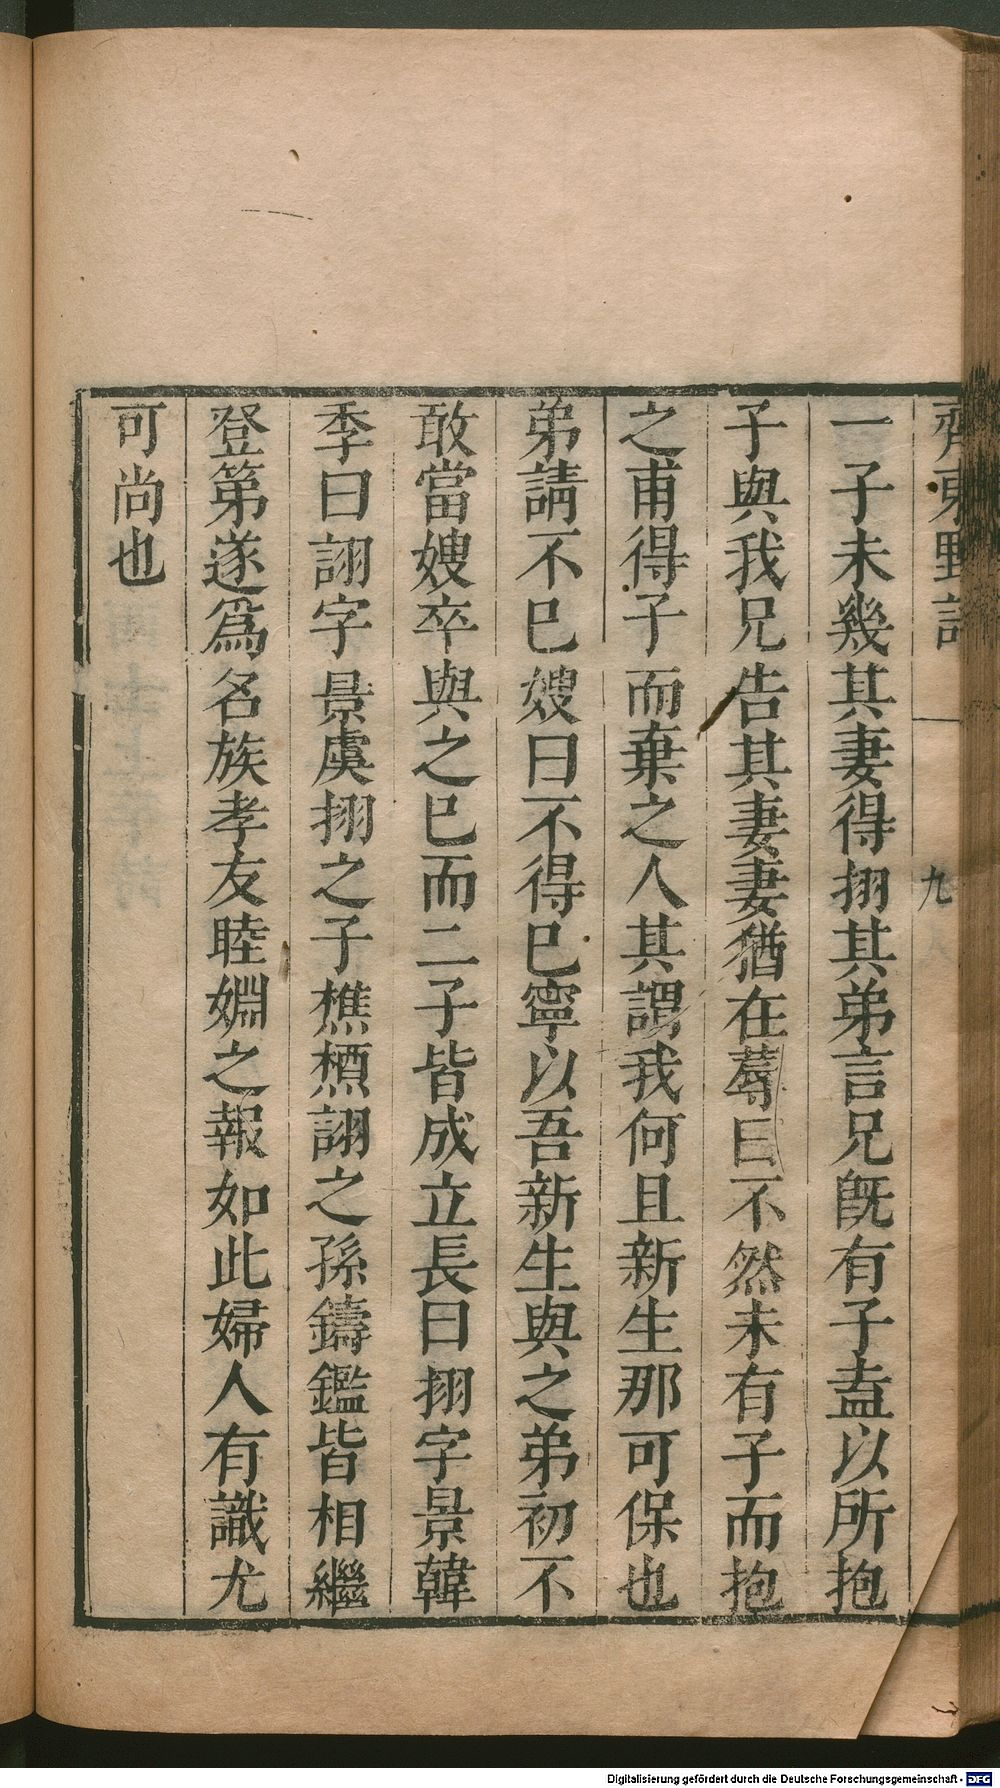 齊東野語
九
一子未幾其妻得挧其弟言兄旣有子盍以所抱
子與我兄告其妻妻猶在蓐曰不然未有子而抱
之甫得子而棄之人其謂我何且新生那可保也
弟請不巳嫂曰不得巳寧以吾新生與之弟初不
敢當嫂卒與之巳而二子皆成立長曰挧字景韓
季曰詡字景虞挧之子樵槱詡之孫鑄鑑皆相繼
登第遂爲名族孝友睦婣之報如此婦人有識尤
可尚也
Digitalisierung gefördert durch die Deutsche Forschungsgemeinschaft - DFG